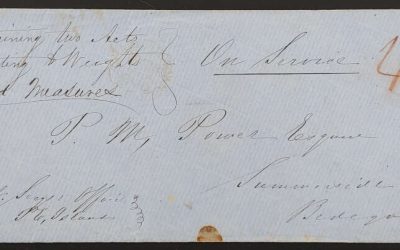 ining two Acts
ting to Weights
d Measures
On Service
4
P. M, Power Esquire
Summerside
Bedeq
Secy's Office
P. E, Island